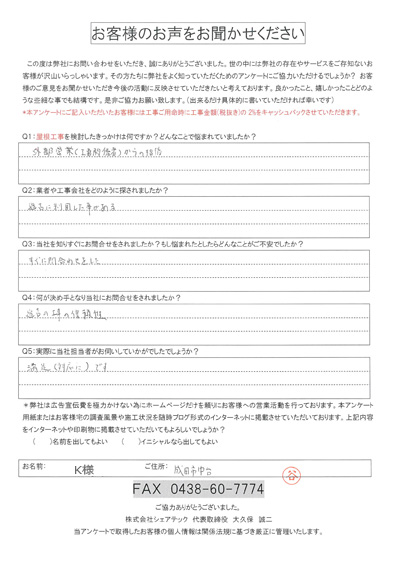 お客様のお声をお聞かせください
この度は弊社にお問い合わせをいただき、誠にありがとうございました。世の中には弊社の存在やサービスをご存知ないお
客様が沢山いらっしゃいます。その方たちに弊社をよく知っていただくためのアンケートにご協力いただけるでしょうか？ お客
様のご意見をお聞かせいただき今後の活動に反映させていただきたいと考えております。良かったこと、嬉しかったことどのよ
うな些細な事でも結構です。是非ご協力お願い致します。（出来るだけ具体的に書いていただければ幸いです）
*本アンケートにご記入いただいたお客様には工事ご用命時に工事金額(税抜き)の2%をキャッシュバックさせていただきます。
Q1:屋根工事を検討したきっかけは何ですか？どんなことで悩まれていましたか？
外部営業(工事経営者)からの指店
Q2:業者や工事会社をどのように探されましたか？
過去に利用した事がある
Q3:当社を知りすぐにお問合せをされましたか？もし悩まれたとしたらどんなことがご不安でしたか？
すぐに問合わせをした
Q4:何が決め手となり当社にお問合せをされましたか？
過去の時の信頼性
Q5:実際に当社担当者がお伺いしていかがでしたでしょうか？
満足(対応に)です
＊弊社は広告宣伝費を極力かけない為にホームページだけを頼りにお客様への営業活動を行っております。本アンケート
用紙またはお客様宅の調査風景や施工状況を随時ブログ形式のインターネットに掲載させていただいております。上記内容
をインターネットや印刷物に掲載させていただいてもよろしいでしょうか？
（　）名前を出してもよい　（　）イニシャルなら出してもよい
お名前: K様 ご住所: 成田市中台 谷
FAX 0438-60-7774
ご協力ありがとうございました。
株式会社シェアテック 代表取締役 大久保 誠二
当アンケートで取得したお客様の個人情報は関係法規に基づき厳正に管理いたします。